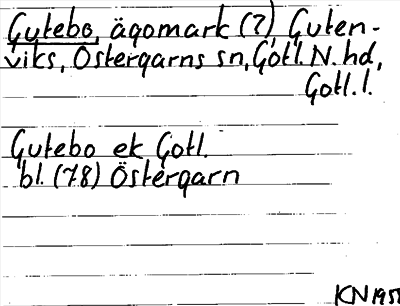 Gutebo, ägomark (?), Guten-
viks, Östergarns sn, Gotl. N. hd,
Gotl. l.
Gutebo ek Gotl.
bl. (78) Östergarn
KN 195